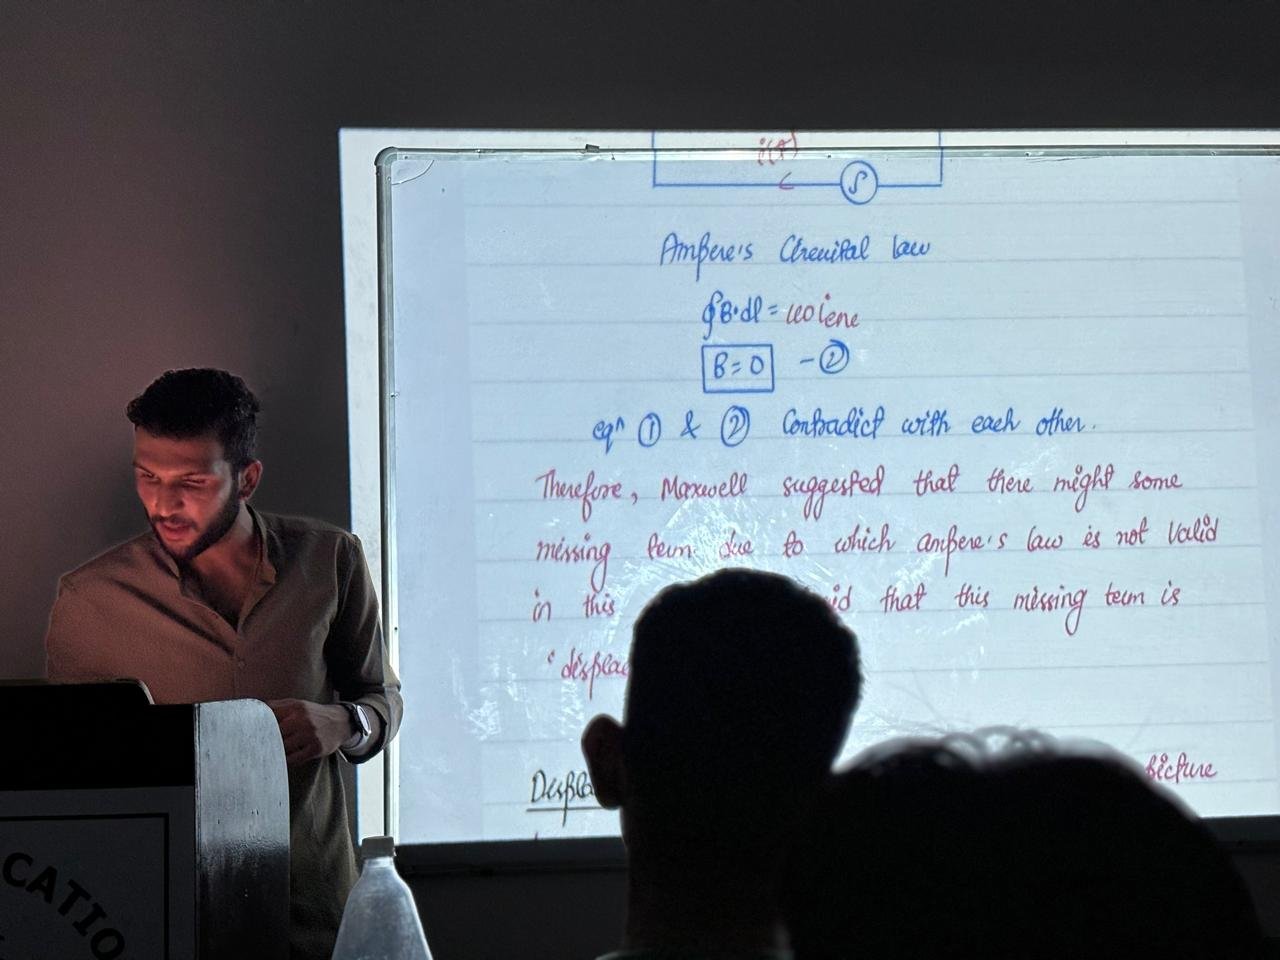 i(t)
Ampere's Circuital law
∮B·dl = μ0 iene
B = 0 - ②
eqⁿ ① & ② Contradict with each other.
Therefore, Maxwell suggested that there might some
missing term due to which ampere's law is not valid
in this that this missing term is
Displa
picture
CATIO